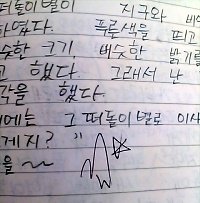 떠돌이 별이 지구와 비
하였다. 푸른색을 띠고
슷한 크기 비슷한 밝기를
고 했다. 그래서 난
각을 했다.
에는 그 떠돌이별로 이사
게지?"
을~~